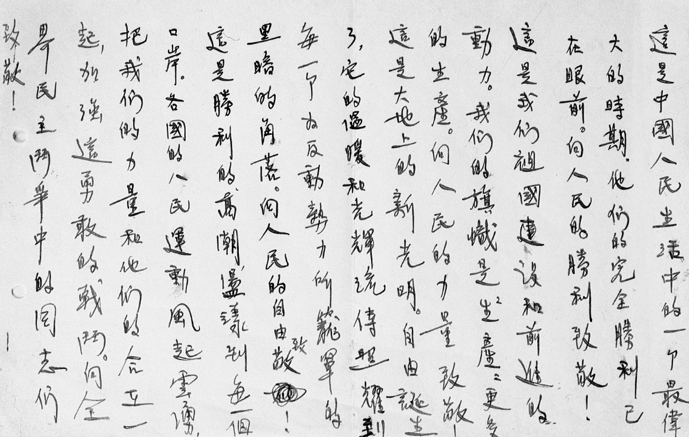 這是中國人民生活中的一个最偉
大的時期。他们的完全勝利已
在眼前。向人民的勝利致敬！
這是我们祖國建设和前進的
動力。我们的旗幟是“生產”“更多
的生產。向人民的力量致敬！
這是大地上的新光明。自由誕生
了，它的溫暖和光輝流傳照耀到
每一个为反動勢力所籠罩的
黑暗的角落。向人民的自由致敬！
這是勝利的高潮，盪漾到每一個
口岸。各國的人民運動風起雲湧，
把我们的力量和他们的合在一
起，加強這勇敢的戰鬥。向全
界民主鬥爭中的同志们
致敬！